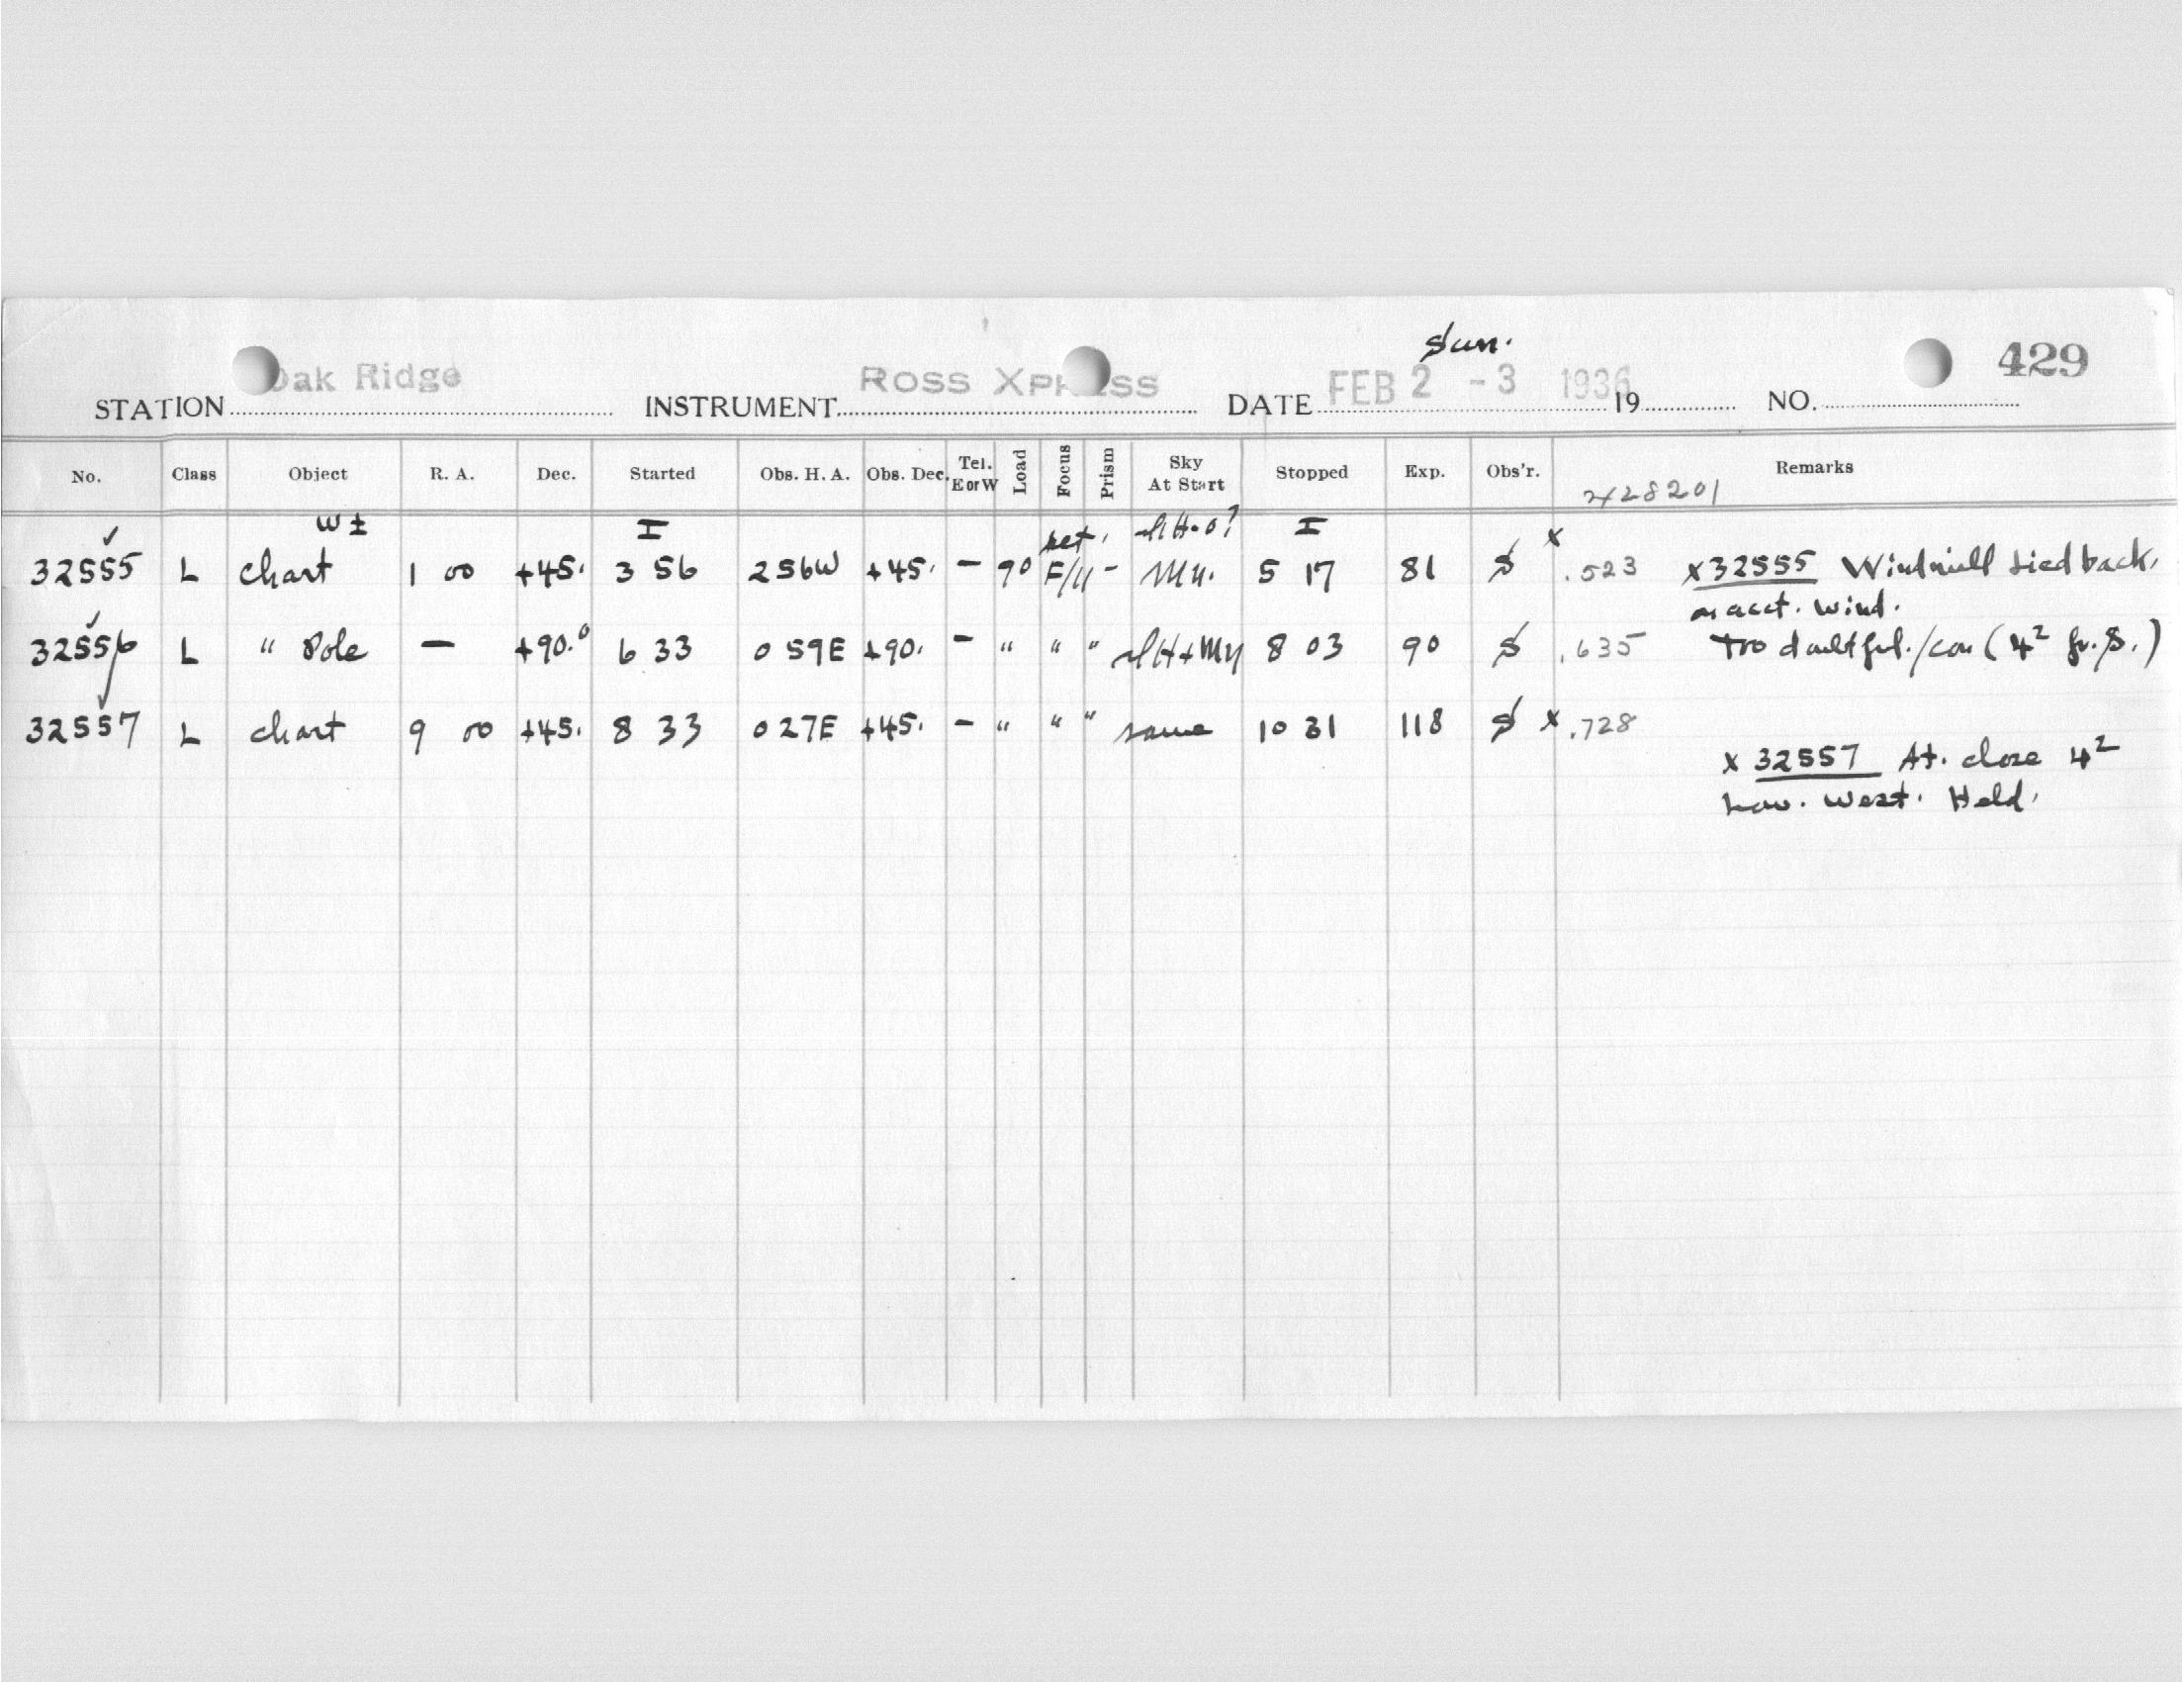 Sun.
STATION Oak Ridge INSTRUMENT ROSS XPRESS DATE FEB 2 - 3 1936 19 NO. 429
No. Class Object R. A. Dec. Started Obs. H. A. Obs. Dec. Tel. E or W Load Focus Prism Sky At Start Stopped Exp. Obs'r. Remarks
2428201
W ± I I
32555 L chart 1 00 +45. 3 56 2 56W +45. - 90 F/11 - 5 17 81 S x .523 x 32555 Windmill tied back,
acct. wind.
32556 L " Pole — +90.° 6 33 0 59E +90. - " " " 8 03 90 S .635 too doubtful. (4² fr. S.)
32557 L chart 9 00 +45. 8 33 0 27E +45. - " " " same 10 31 118 S x .728
x 32557 At. close 4²
West. Held.